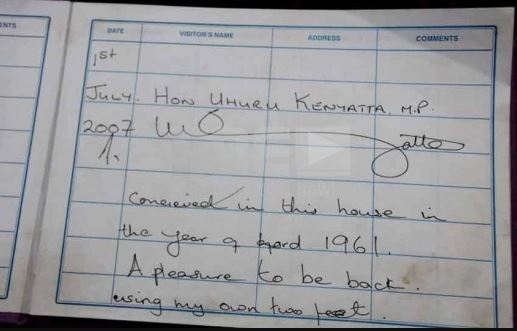 ENTS
DATE VISITOR'S NAME ADDRESS COMMENTS
1st
JULY. HON UHURU KENYATTA. M.P.
2007
Conceived in this house in
the year of Lord 1961.
A pleasure to be back.
using my own two feet.